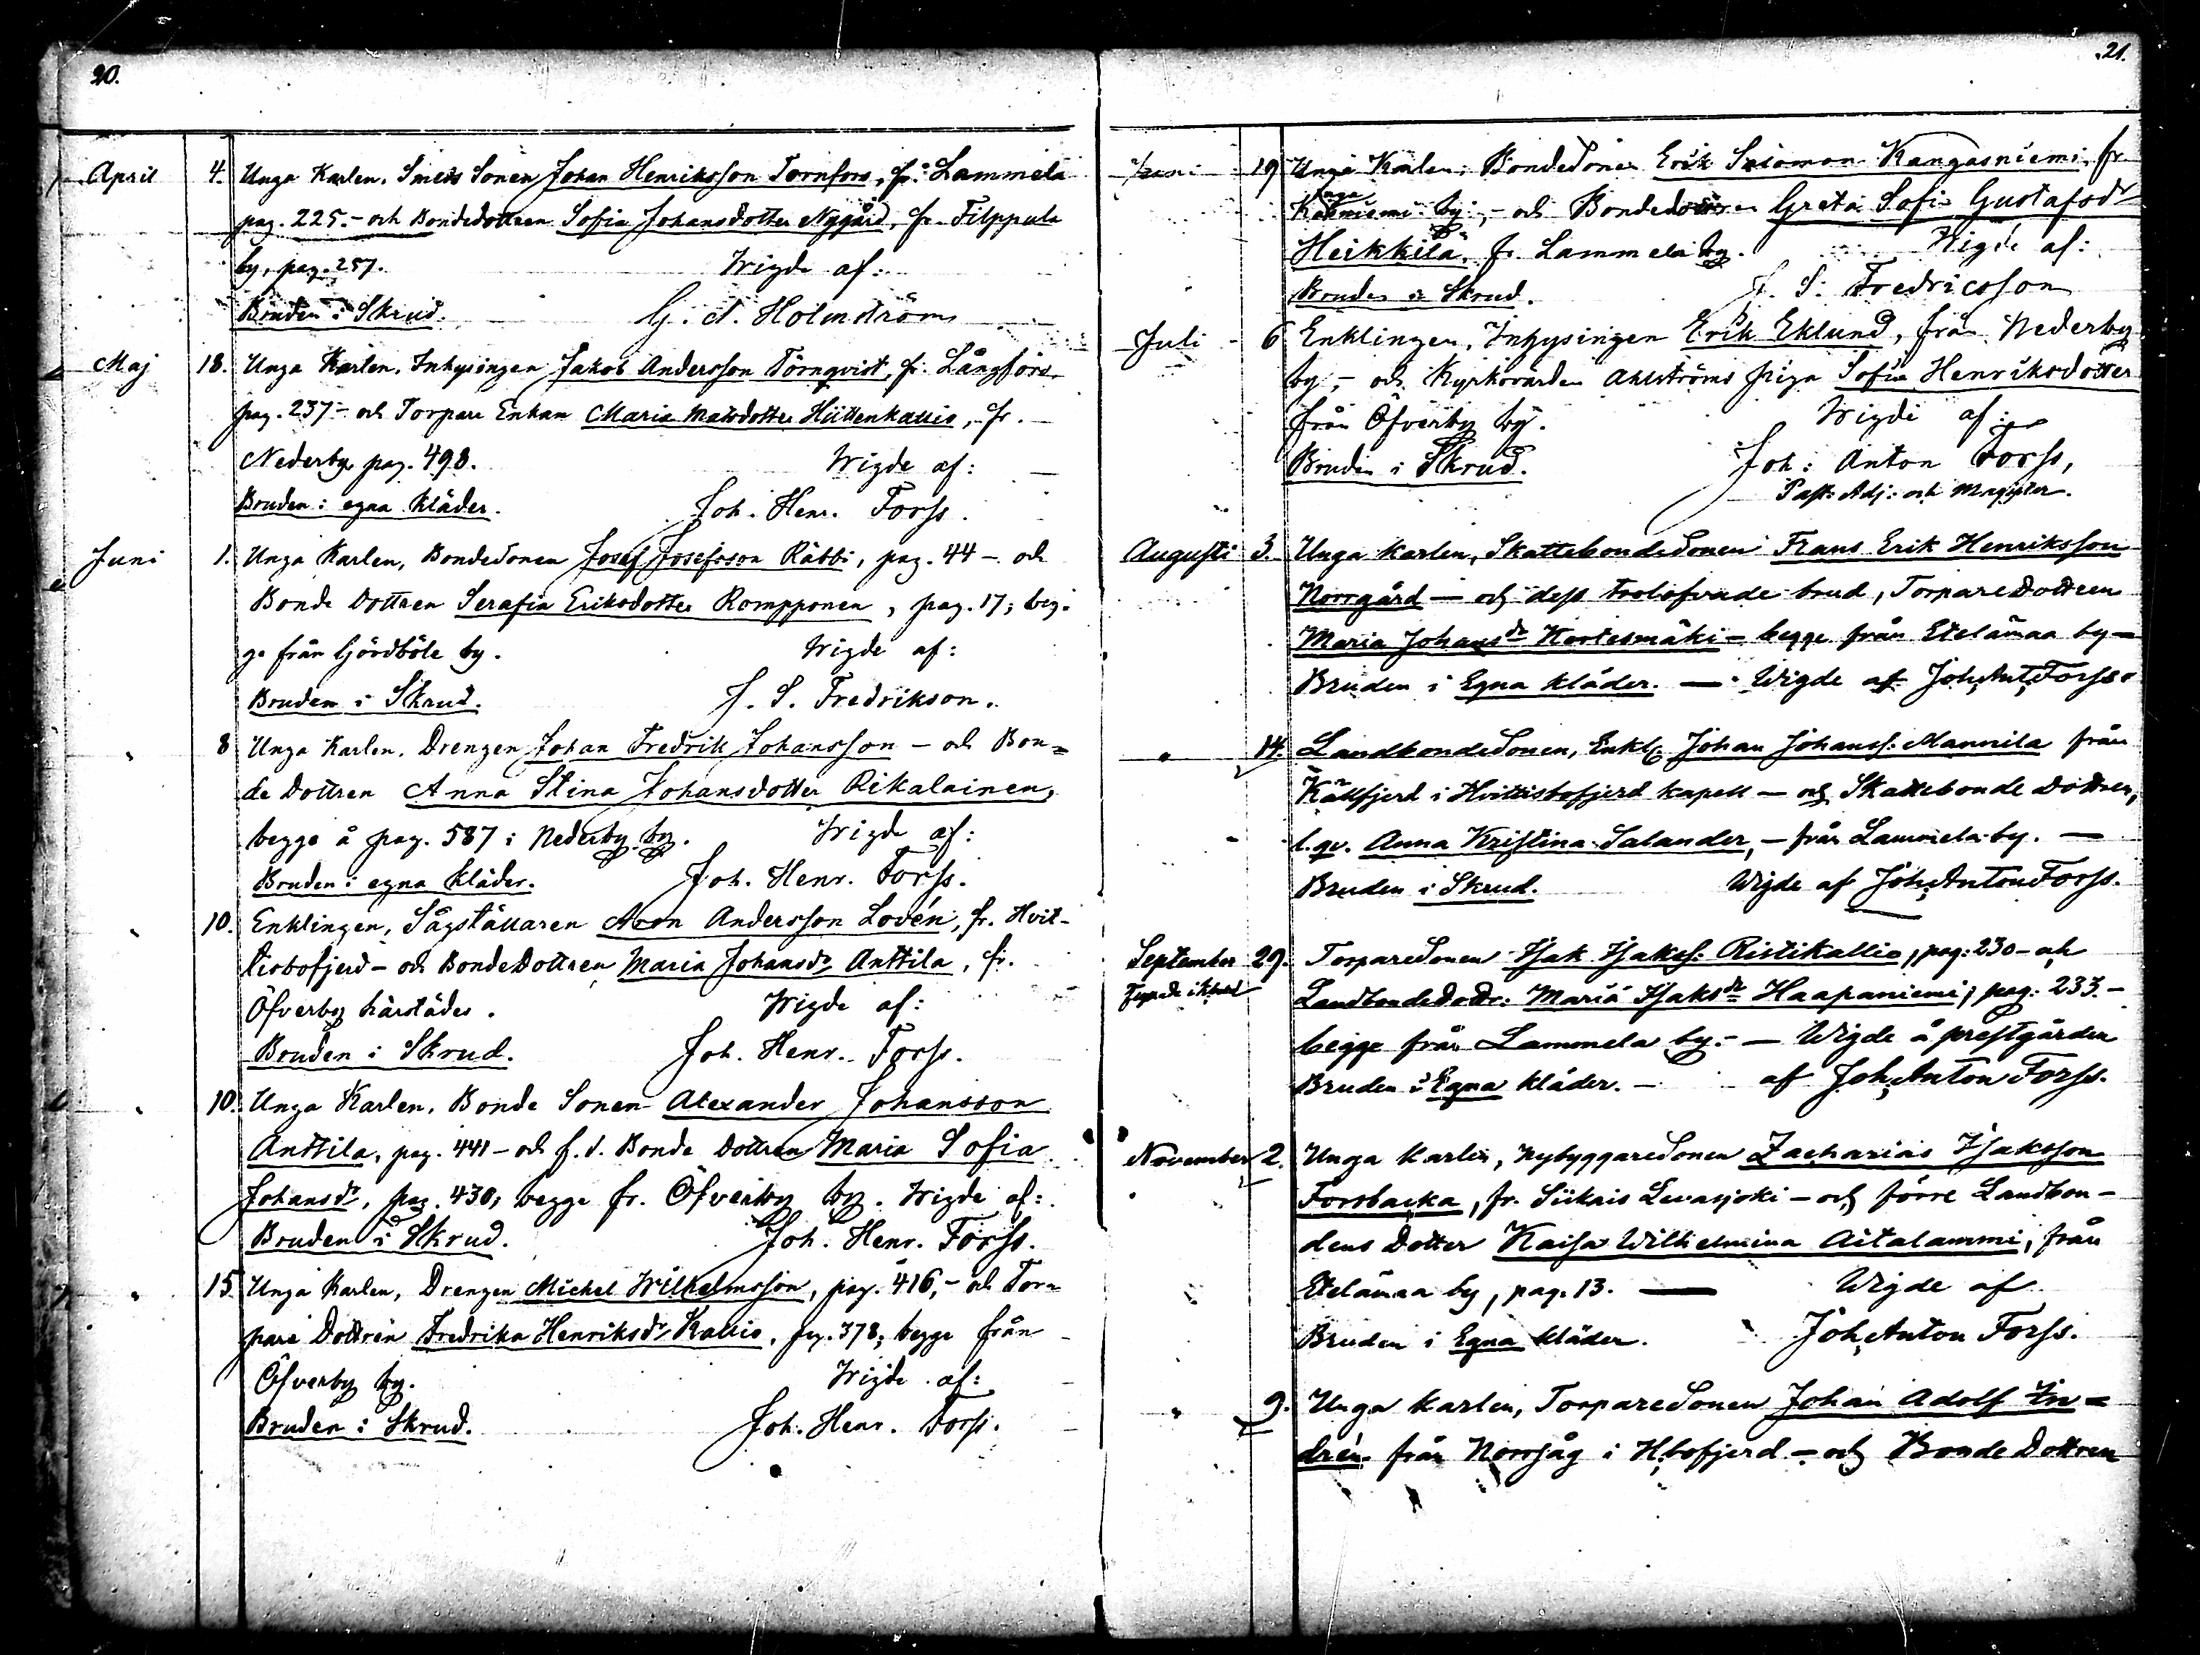 20.
April 4. Unga Karlen, Smeds Sonen Johan Henriksson Tornfors, fr. Lammela
pag. 225. - och Bondedottren Sofia Johansdotter Nygård, fr. Filppula
by, pag. 257. Wigde af:
Bruden i Skrud. G. A. Holmström
Maj 18. Unga Karlen, Inhysingen Jakob Andersson Törnqvist, fr. Långfors
pag. 237 - och Torpare Enkan Maria Matsdotter Hiittenkallio, fr.
Nederby pag. 498. Wigde af:
Bruden i egna kläder. Joh. Henr. Forss.
Juni 1. Unga Karlen, Bondesonen Josef Josefsson Räbbi, pag. 44 - och
Bonde Dottren Serafia Eriksdotter Rompponen, pag. 17, beg-
ge från Gördböle by. Wigde af:
Bruden i Skrud. J. S. Fredrikson.
" 8 Unga Karlen, Drengen Johan Fredrik Johansson - och Bon=
de Dottren Anna Stina Johansdotter Rikalainen,
begge å pag. 587 i Nederby by. Wigde af:
Bruden i egna kläder. Joh. Henr. Forss.
" 10. Enklingen, Sågställaren Aron Andersson Lovén, fr. Hvit-
tisbofjerd - och BondeDottren Maria Johansdr Anttila, fr.
Öfverby härstädes. Wigde af:
Bruden i Skrud. Joh. Henr. Forss.
" 10. Unga Karlen, Bonde Sonen Alexander Johansson
Anttila, pag. 441 - och f. d. Bonde Dottren Maria Sofia
Johansdr, pag. 430, begge fr. Öfverby by. Wigde af:
Bruden i Skrud. Joh. Henr. Forss.
" 15 Unga Karlen, Drengen Michel Wilhelmsson, pag. 416, - och Tor=
pare Dottren Fredrika Henriksdr Kallio, pag. 378, begge från
Öfverby by. Wigde af:
Bruden i Skrud. Joh. Henr. Forss.
21.
Juni 19 Unga Karlen, BondeSonen Erik Salomon Kangasniemi, fr.
by, - och Bondedottren Greta Sofia Gustafsdr
Heikkilä, fr. Lammela by. Wigde af:
Bruden i Skrud. J. S. Fredricsson
Juli 6 Enklingen, Inhysingen Erik Eklund, från Nederby
by, - och Kyrkovärden Ahlströms piga Sofia Henriksdotter
från Öfverby by. Wigde af:
Bruden i Skrud. Joh: Anton Forss,
Past. Adj. och Magister.
Augusti 3. Unga Karlen, SkattebondeSonen Frans Erik Henriksson
Norrgård - och dess trolofvade brud, TorpareDottren
Maria Johansdr Kortesmäki - begge från Etelämaa by -
Bruden i Egna kläder. - Wigde af Joh. Ant. Forss.
" 14. LandbondeSonen, Enkl. Johan Johanss. Mannila från
Källfjerd i Hvittisbofjerd kapell - och Skattebonde Dottren,
l. qv. Anna Kristina Salander, - från Lammela by. -
Bruden i Skrud. Wigde af Joh. Anton Forss.
September 29. TorpareSonen Isak Isakss. Ristikallio, pag: 230 - och
LandbondeDottr: Maria Isaksdr Haapaniemi, pag: 233. -
begge från Lammela by. - Wigde å prestgården
Bruden i Egna kläder. - af Joh. Anton Forss.
November 2. Unga Karlen, NybyggareSonen Zacharias Isaksson
Forsbacka, fr. Siikais Leväsjoki - och förre Landbon-
dens Dotter Kaisa Wilhelmina Aitalammi, från
Etelämaa by, pag. 13. - Wigde af
Bruden i Egna kläder. Joh. Anton Forss.
" 9. Unga Karlen, TorpareSonen Johan Adolf In=
drén från Norrsåg i Hbofjerd - och BondeDottren